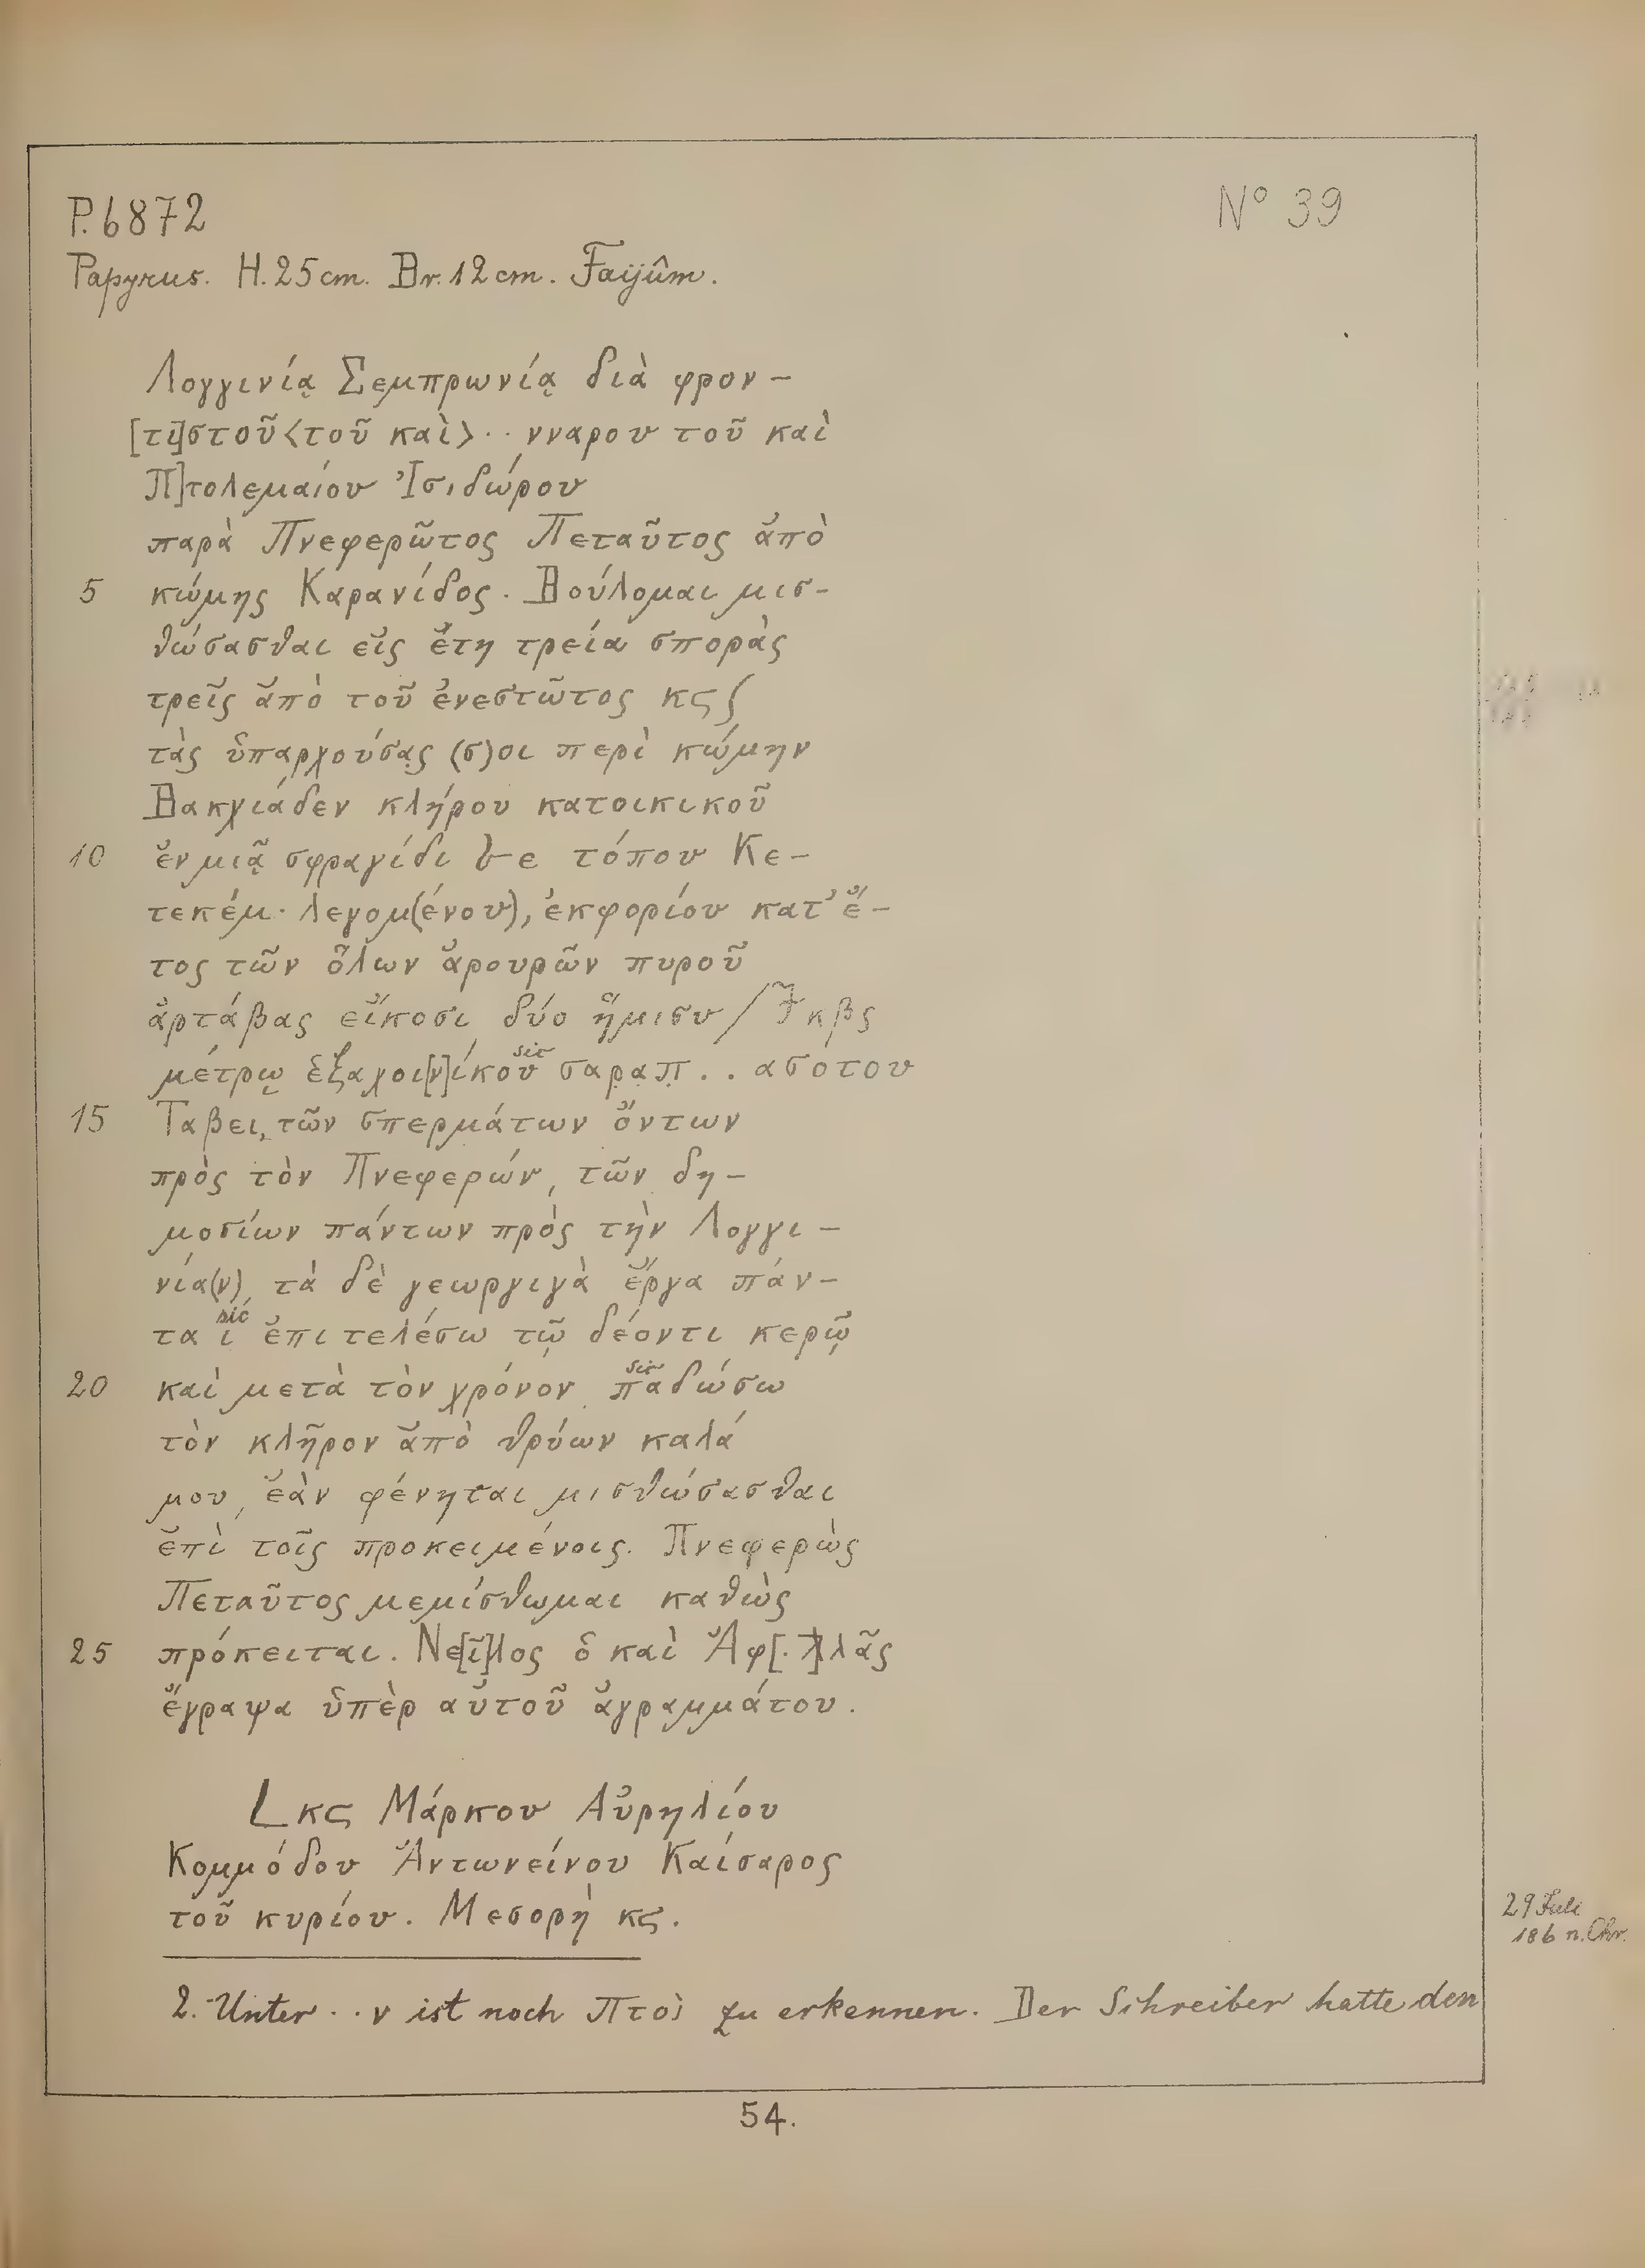 P. 6872
Nº 39
Papyrus. H. 25 cm. Br. 12 cm. Faijûm.
Λογγινίᾳ Σεμπρωνίᾳ διὰ φρον-
[τι]στοῦ <τοῦ καὶ> . . ννάρου τοῦ καὶ
Π]τολεμαίου Ἰσιδώρου
παρὰ Πνεφερῶτος Πεταῦτος ἀπὸ
5 κώμης Καρανίδος. Βούλομαι μισ-
θώσασθαι εἰς ἔτη τρεία σπορὰς
τρεῖς ἀπὸ τοῦ ἐνεστῶτος κϛ ʃ
τὰς ὑπαρχούσας (σ)οι περὶ κώμην
Βακχιάδεν κλήρου κατοικικοῦ
10 ἐν μιᾷ σφραγίδι 𐅵 ε τόπου Κε-
τεκέμ. λεγομ(ένου), ἐκφορίου κατ' ἔ-
τος τῶν ὅλων ἀρουρῶν πυροῦ
ἀρτάβας εἴκοσι δύο ἥμισυ / κβς
μέτρῳ ἑξαχοι[ν]ίκου sic σαραπ . . ασότου
15 Ταβει, τῶν σπερμάτων ὄντων
πρὸς τὸν Πνεφερών, τῶν δη-
μοσίων πάντων πρὸς τὴν Λογγι-
νία(ν), τὰ δὲ γεωργιγὰ ἔργα πάν-
τα ι sic ἐπιτελέσω τῷ δέοντι κερῷ
20 καὶ μετὰ τὸν χρόνον παδώσω sic
τὸν κλῆρον ἀπὸ θρύων καλά
μου, ἐὰν φένηται μισθώσασθαι
ἐπὶ τοῖς προκειμένοις. Πνεφερὼς
Πεταῦτος μεμίσθωμαι καθὼς
25 πρόκειται. Νε[ῖ]λος ὁ καὶ Ἀφ[.]λλᾶς
ἔγραψα ὑπὲρ αὐτοῦ ἀγραμμάτου.
L κϛ Μάρκου Αὐρηλίου
Κομμόδου Ἀντωνείνου Καίσαρος
τοῦ κυρίου. Μεσορὴ κϛ.
29 Juli
186 n. Chr.
2. Unter . . ν ist noch Πτολ zu erkennen. Der Schreiber hatte den
54.